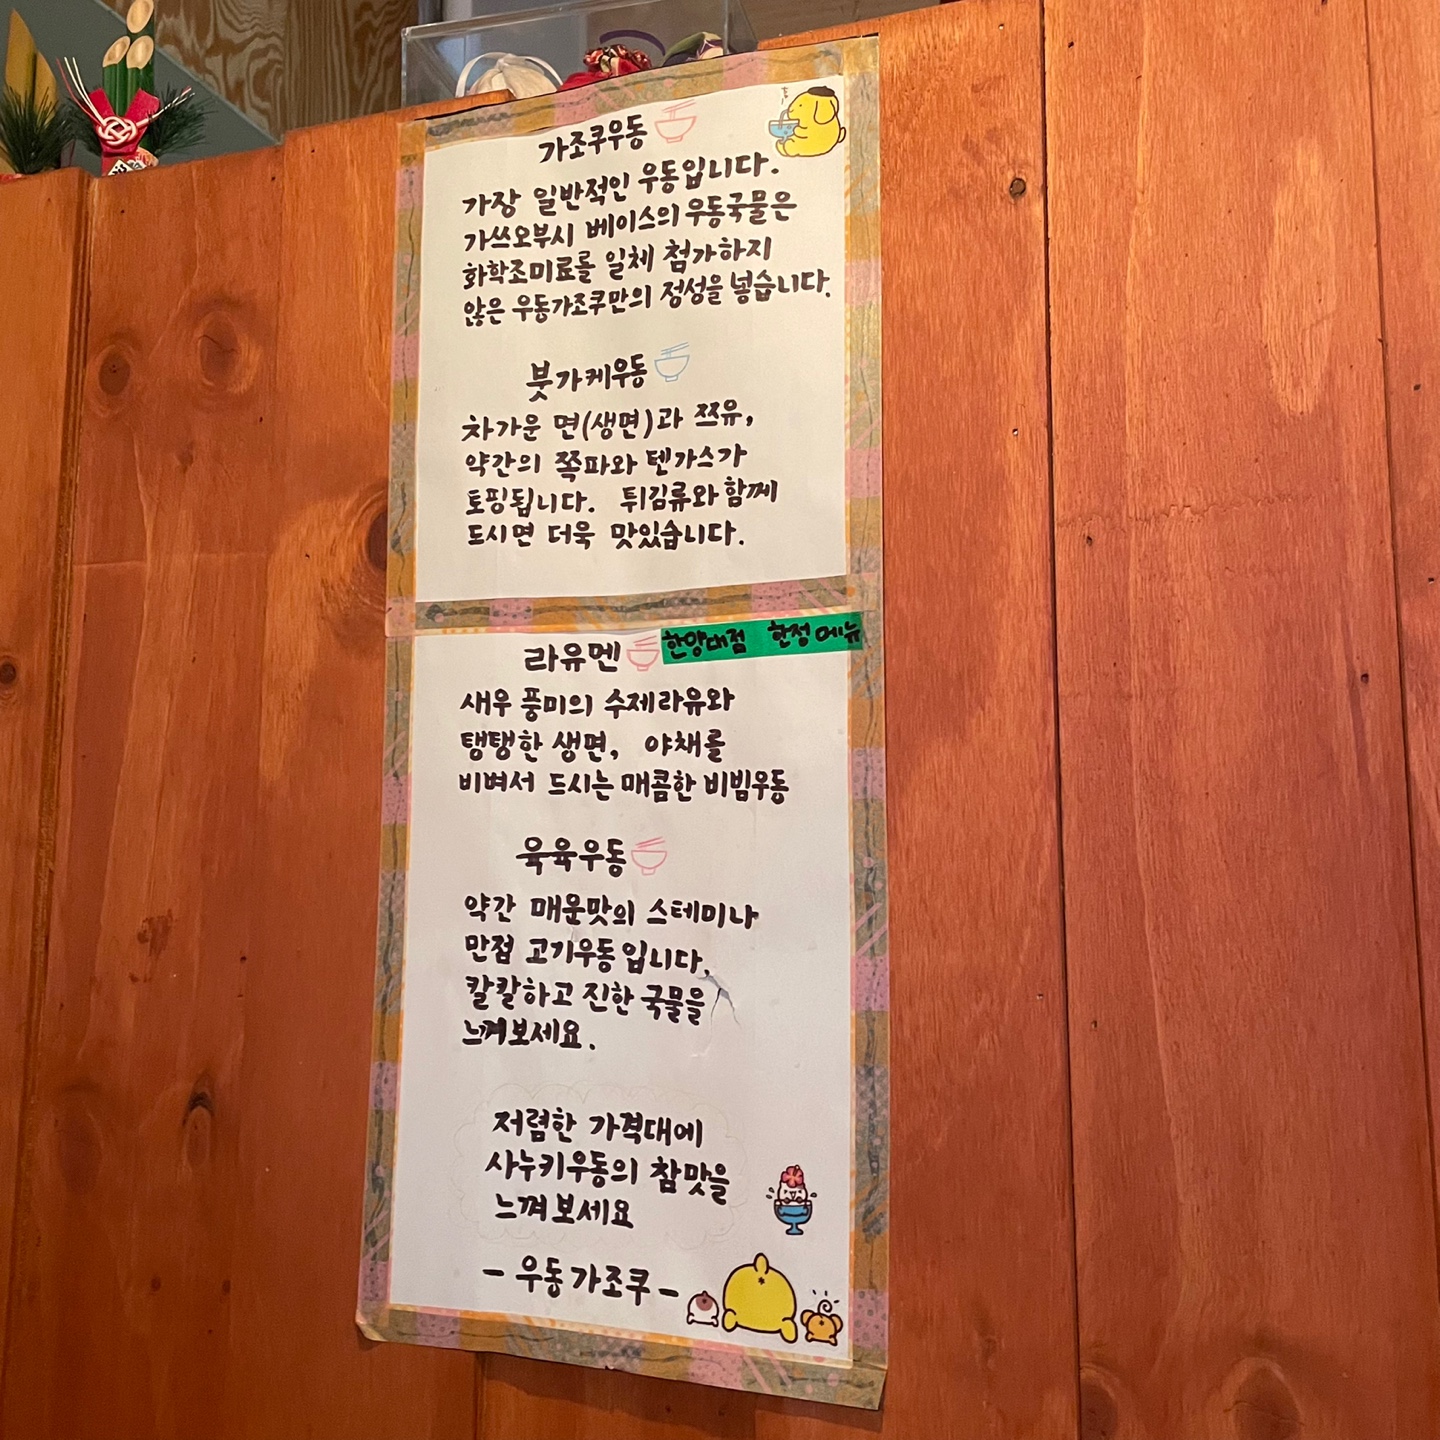 가조쿠우동
가장 일반적인 우동입니다.
가쓰오부시 베이스의 우동국물은
화학조미료를 일체 첨가하지
않은 우동가조쿠만의 정성을 넣습니다.
붓가케우동
차가운 면(생면)과 쯔유,
약간의 쪽파와 텐가스가
토핑됩니다. 튀김류와 함께
드시면 더욱 맛있습니다.
라유멘
한양대점 한정 메뉴
새우 풍미의 수제라유와
탱탱한 생면, 야채를
비벼서 드시는 매콤한 비빔우동
육육우동
약간 매운맛의 스테미나
만점 고기우동입니다.
칼칼하고 진한 국물을
느껴보세요.
저렴한 가격대에
사누키우동의 참맛을
느껴보세요
- 우동가조쿠 -